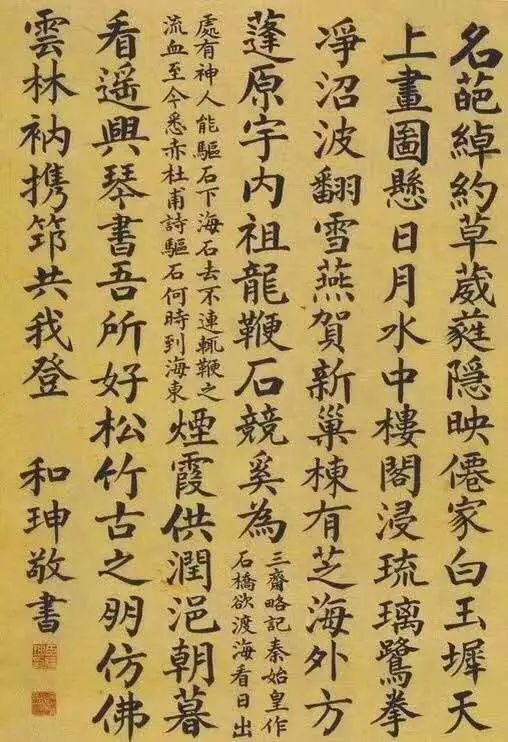 名葩綽約草葳蕤隱映僊家白玉墀天
上畫圖懸日月水中樓閣浸琉璃鷺拳
凈沼波翻雪燕賀新巢棟有芝海外方
蓬原宇内祖龍鞭石競奚為
三齋略記秦始皇作
石橋欲渡海看日出
處有神人能驅石下海石去不連輒鞭之
流血至今悉赤杜甫詩驅石何時到海東
煙霞供潤浥朝暮
看遥興琴書吾所好松竹古之朋仿佛
雲林衲携筇共我登 和珅敬書